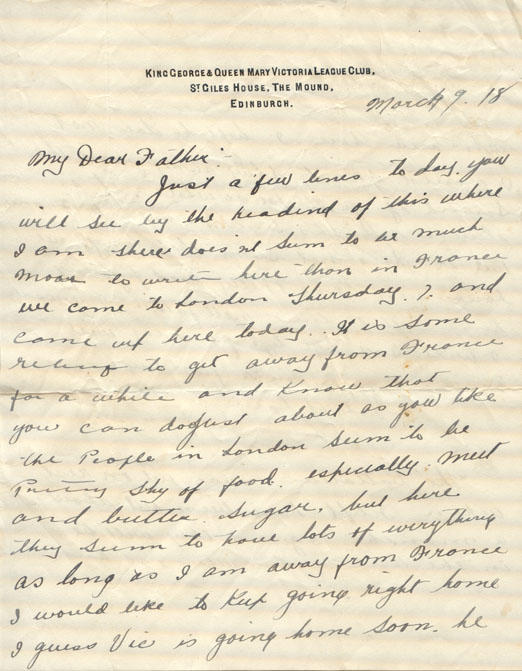 KING GEORGE & QUEEN MARY VICTORIA LEAGUE CLUB,
ST GILES HOUSE, THE MOUND,
EDINBURGH.
March 9. 18
My Dear Father:-
Just a few lines to day. you
will see by the headind of this where
I am there does'nt sum to be much
moar to write here than in France
we come to London Thursday. 7. and
came up here today. It is some
relief to get away from France
for a while and Know that
you can do just about as you like
the People in London sum to be
Pretty shy of food. especially. meet
and butter. sugar. but here
they sum to have lots of everything
as long as I am away from France
I would like to Keep going right home
I guess Vic is going home soon. he